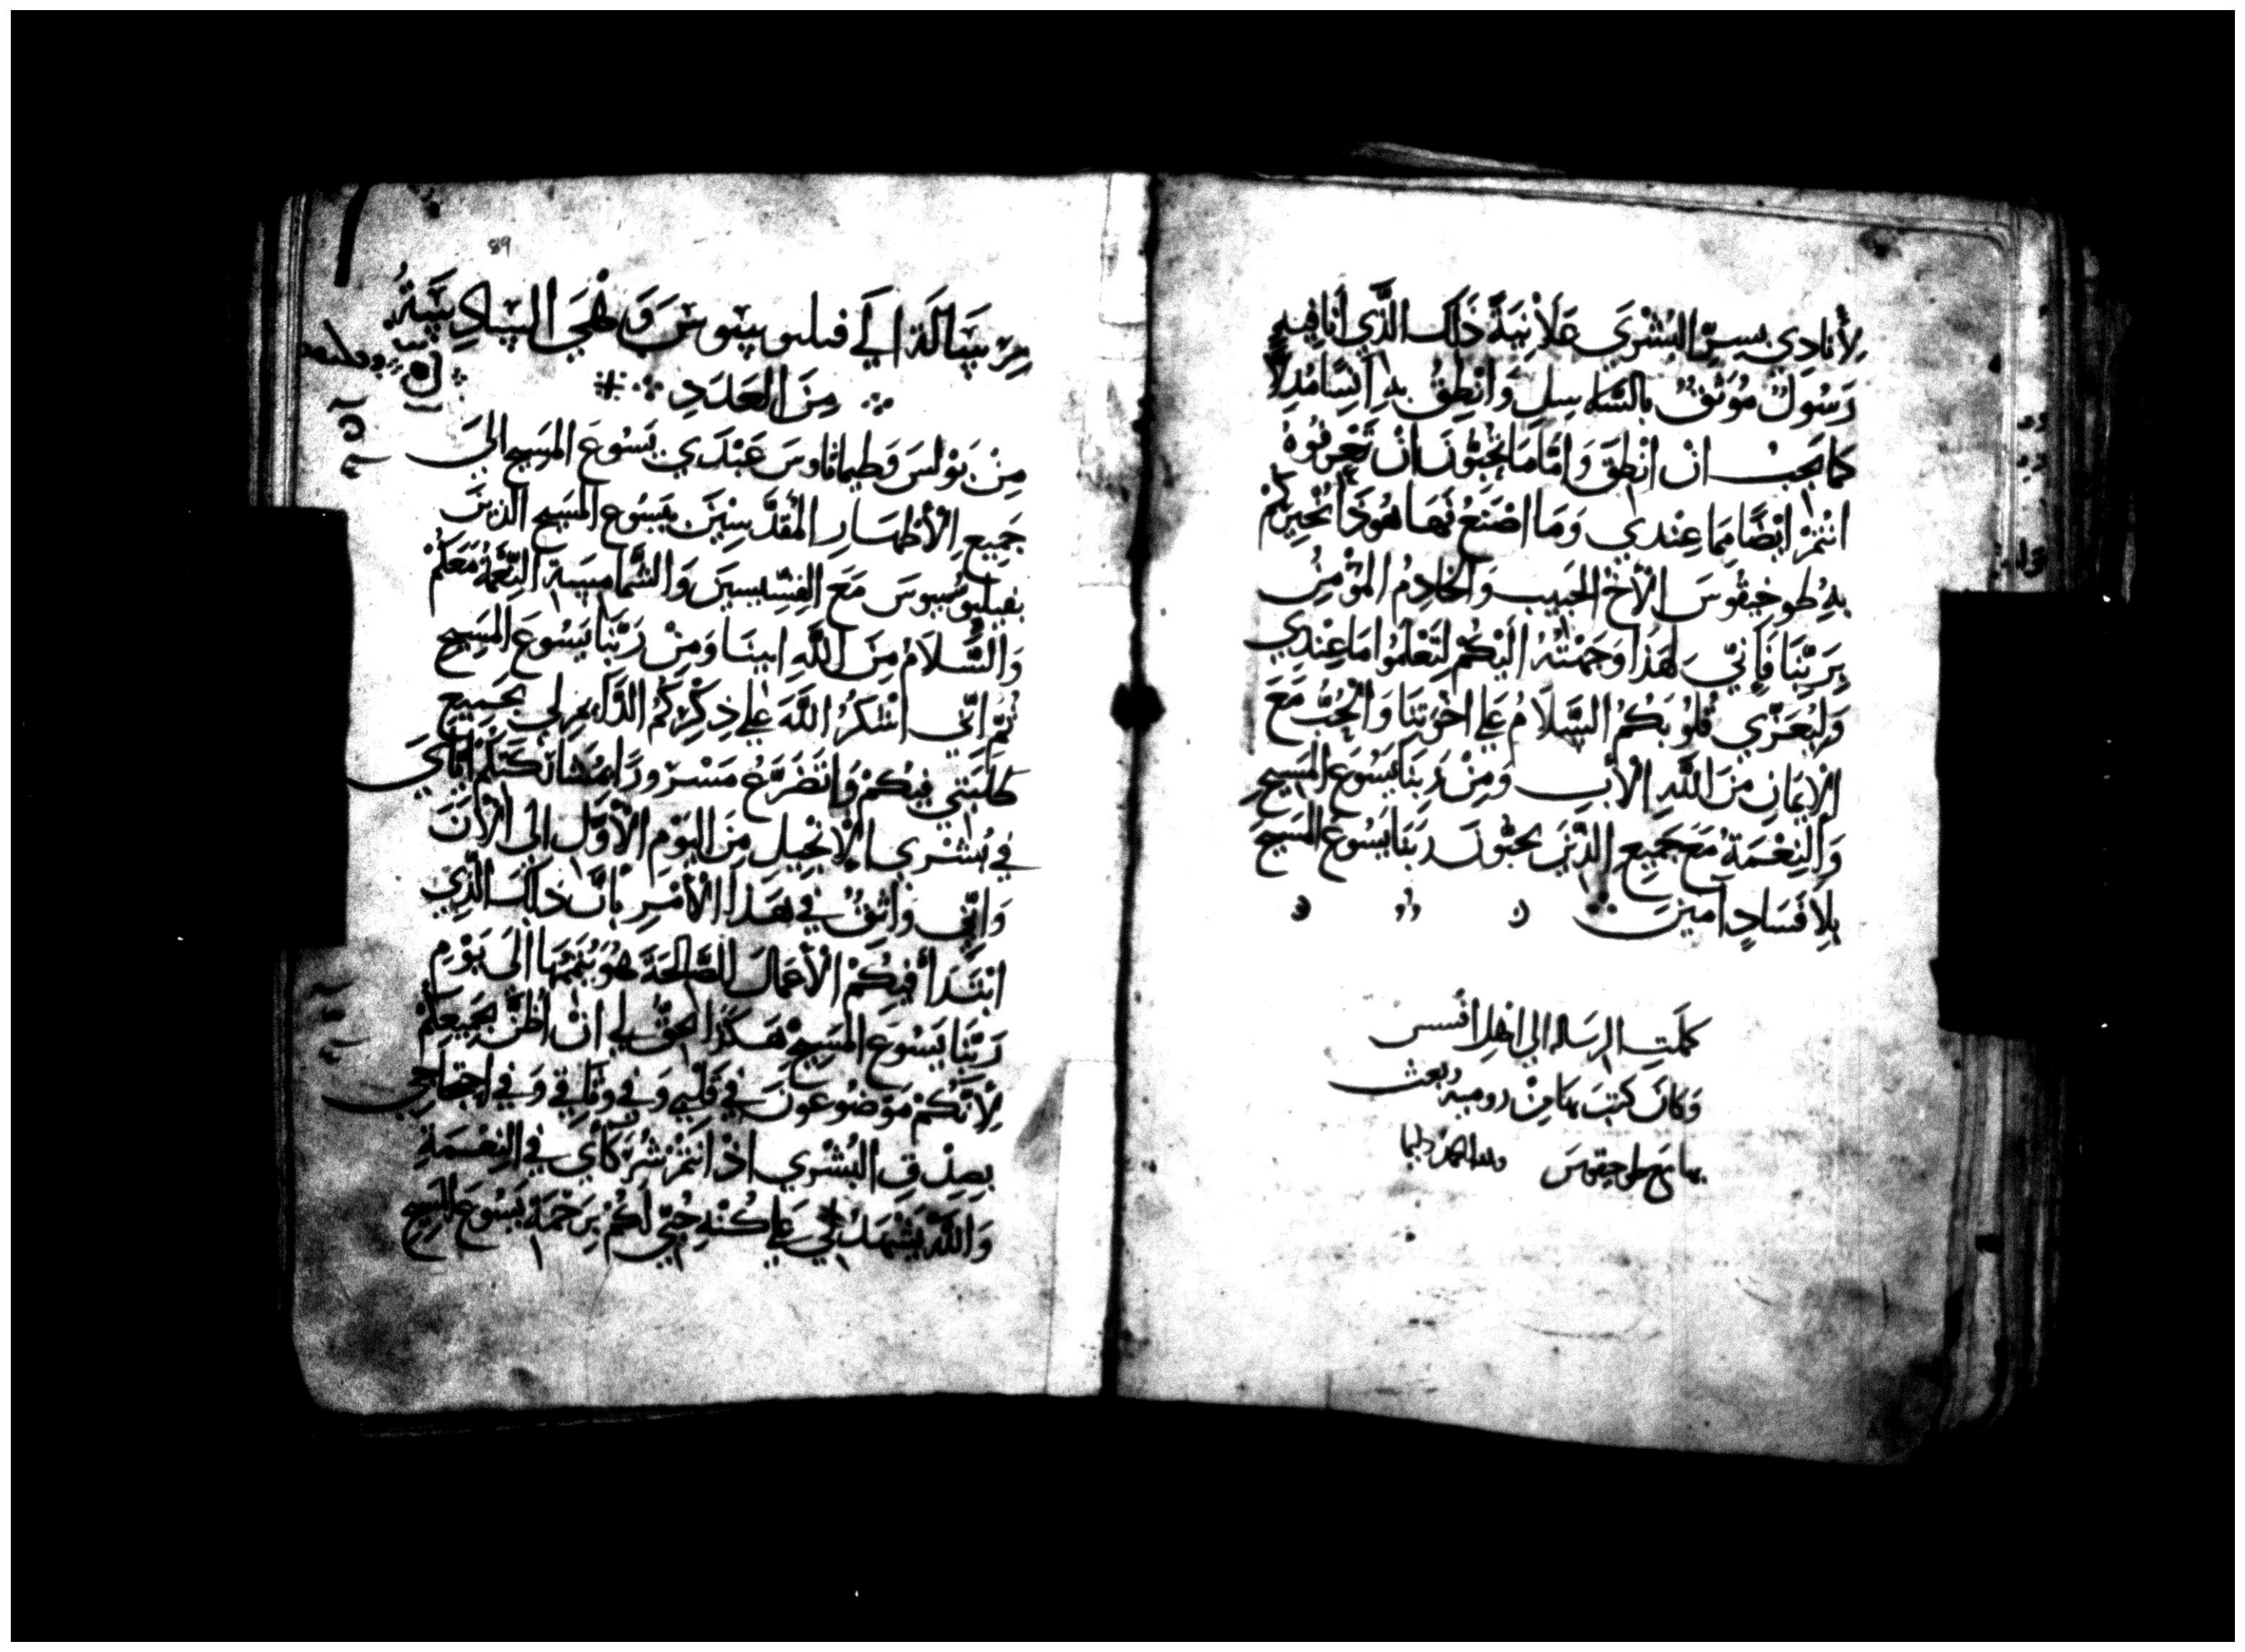 لِأُنَادِي بِسِرِّ البُشْرَي عَلَانِيَةً ذَلِكَ الَّذِي أَنَا فِيهِ
رَسُولٌ مُوَثَّقٌ بِالسَّلَاسِلِ وَانْطِقُ بِهِ انِسَا مُدِلًّا
كَمَا يَجِبُ انْ انْطِقَ وَامَّا مَا تُحِبُّونَ انْ تَعْرِفُوهُ
انْتُمْ ايْضًا مِمَا عِنْدِي وَمَا اصْنَعُ فَهَا هُوَذَا يُخْبِرُكُمْ
بِهِ طوخِيقُوسَ الْأَخُ الحَبِيب وَالخَادِمُ المُؤْمِنُ
بِرَبِّنَا فَإِنِّيَ لِهَذَا وَجَّهْتُهُ الَيْكُمْ لِتَعْلَمُوا مَا عِنْدِي
وَلِيُعَزِّي قُلُوبَكُمُ السَّلَامُ عَلَي اخْوَتِنَا وَالْحُبُّ مَعَ
الْايمَانِ مِنَ اللَّهِ الْأَبِ وَمِنْ رَبِنَا يَسُوعَ المَسِيحِ
وَالنِعْمَةُ مَعَ جَمِيعِ الذِّينَ يحِبُّونَ رَبَنَا يَسُوعَ المَسِيحَ
بِلَا فَسَادٍ آمينَ
كملَتِ الرساله الي اهْل افسس
وَكانَ كتبَ بهَا مِنْ روميه وبعث
بها مَع طوخيقوسَ ولله الحمد دايما
89
رِسَالَة الَي فيلبوسيوسَ وَهْيَ السادِسَةُ
مِنَ العَدَدِ
مِنْ بَوْلسَ وَطيماثاوسَ عَبْدَي يَسُوعَ المَسِيحِ الَى
جَمِيعِ الْأَطْهَارِ المُقَدَّسِينَ بيَسُوع المَسِيحِ الذِينَ
بفيلبوسيوسَ مَعَ القِسِّيسِينَ وَالشَّمَامِسَةِ النِّعْمَةُ مَعَكُمْ
وَالسَّلَامُ مِنَ اللَّهِ ابينَا وَمِنْ رَبِّنَا يَسُوعَ المَسِيحِ
ثُمَّ انِّي اشْكُرُ اللَّهَ عَلَي ذِكْرِكُمُ الدَّايِمِ لِي بجَمِيعِ
طَلبَتِي فِيكُمْ وَاتَضَرَّعُ مَسْرُورًا بمُشَارَكَتِكُمْ ايَّايَ
فِي بُشْرَي الْانْجِيلِ مِنَ اليَوْمِ الْأَوَّلِ الَى الْآنَ
وَانِّي وَاثِقٌ فِي هَذَا الْأَمْرِ بِانَّ ذَلِكَ الَّذِي
ابْتَدَأَ فِيكُمْ الْأَعْمَالَ الصَّالِحَةَ هُوَ يُتِمُّهَا الَى يَوْمِ
رَبِّنَا يَسُوعَ المَسِيحِ هَكَذَا يَحِقُّ لِي انْ اظُنَّ بجَمِيعِكُمْ
لِأَنَّكُمْ مَوْضُوعُونَ فِي قَلْبِي وَفِي وَثَاقِي وَفِي احتِجَاجِي
بِصِدْقِ البُشْرَي اذْ انْتُمْ شُرَكَاي فِي النِعْمَةِ
وَاللَّهُ يَشْهَدُ لِي عَلَي كُنْهِ حُبِّي لَكُمْ بِرَحْمَةِ يَسُوعَ المَسِيحِ